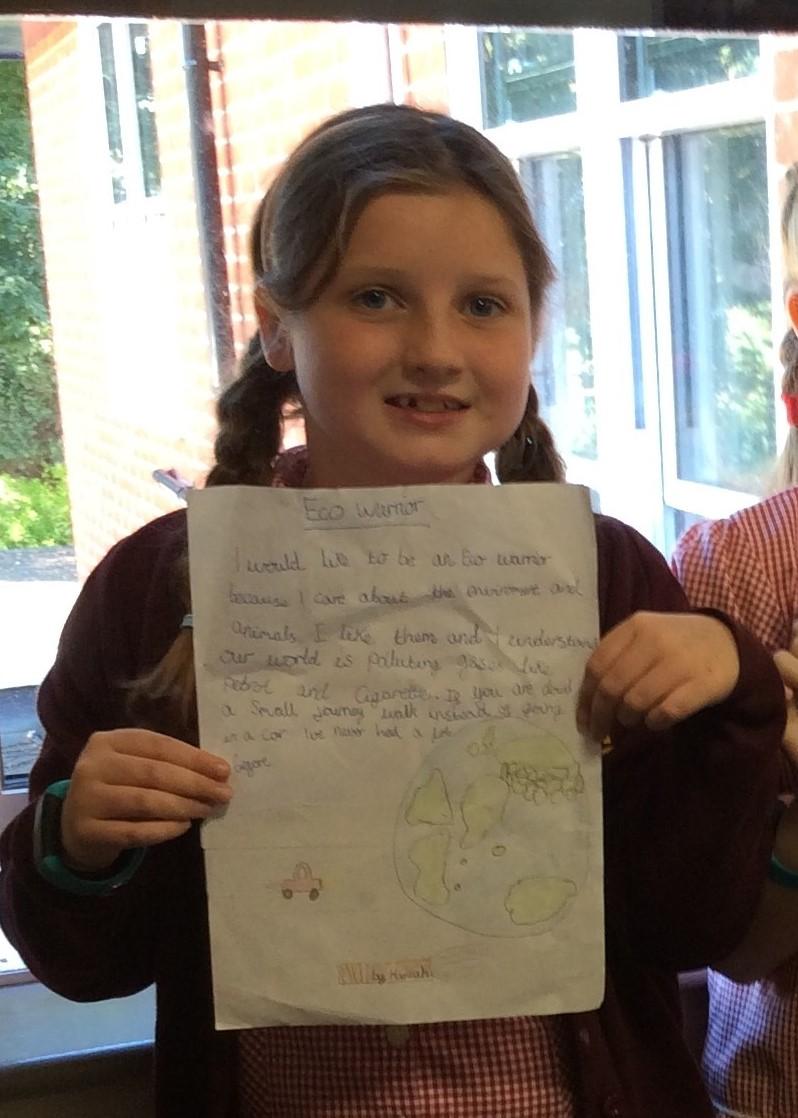 Eco Warrior
I would like to be an Eco warrior
because I care about the enviroment and
animals I like them and I understand
our world is polluting gases like
Petrol and Cigarette. If you are doing
a small journey walk instead of going
in a car I've never had a job
before
by